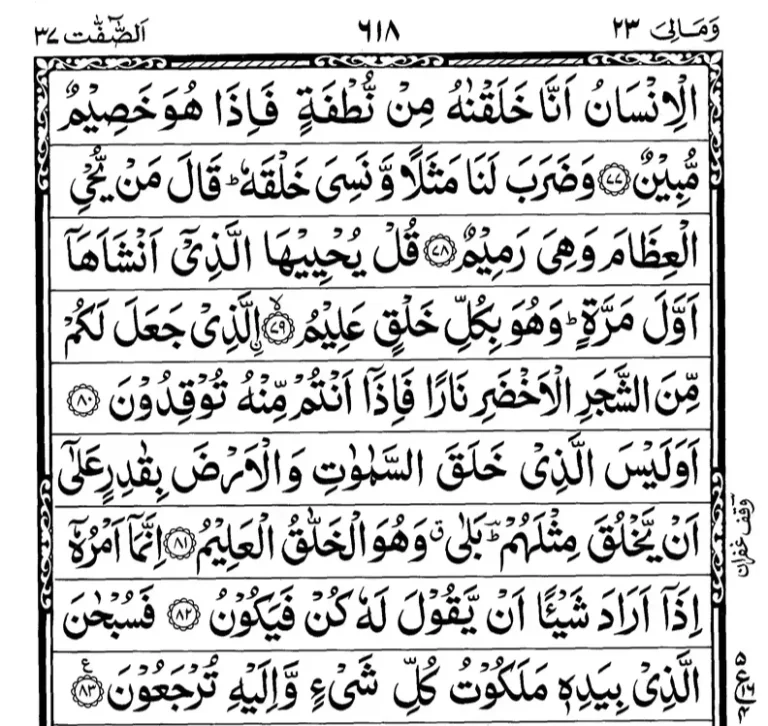 وَمَالِیَ ٢٣
٦١٨
اَلصّٰٓفّٰت ٣٧
الْاِنْسَانُ اَنَّا خَلَقْنٰهُ مِنْ نُّطْفَةٍ فَاِذَا هُوَ خَصِیْمٌ
مُّبِیْنٌ ﴿٧٧﴾ وَضَرَبَ لَنَا مَثَلًا وَّنَسِیَ خَلْقَهٗ ؕ قَالَ مَنْ یُّحْیِ
الْعِظَامَ وَهِیَ رَمِیْمٌ ﴿٧٨﴾ قُلْ یُحْیِیْهَا الَّذِیْۤ اَنْشَاَهَاۤ
اَوَّلَ مَرَّةٍ ؕ وَهُوَ بِكُلِّ خَلْقٍ عَلِیْمُ ۙ﴿٧٩﴾ اِ۟لَّذِیْ جَعَلَ لَكُمْ
مِّنَ الشَّجَرِ الْاَخْضَرِ نَارًا فَاِذَاۤ اَنْتُمْ مِّنْهُ تُوْقِدُوْنَ ﴿٨٠﴾
اَوَلَیْسَ الَّذِیْ خَلَقَ السَّمٰوٰتِ وَالْاَرْضَ بِقٰدِرٍ عَلٰۤی
اَنْ یَّخْلُقَ مِثْلَهُمْ ؕ بَلٰی ۗ وَهُوَ الْخَلّٰقُ الْعَلِیْمُ ﴿٨١﴾ اِنَّمَاۤ اَمْرُهٗۤ
اِذَاۤ اَرَادَ شَیْـًٔا اَنْ یَّقُوْلَ لَهٗ كُنْ فَیَكُوْنُ ﴿٨٢﴾ فَسُبْحٰنَ
الَّذِیْ بِیَدِهٖ مَلَكُوْتُ كُلِّ شَیْءٍ وَّاِلَیْهِ تُرْجَعُوْنَ ﴿٨٣﴾ ع
وقف غفران
٥
ع ١٦